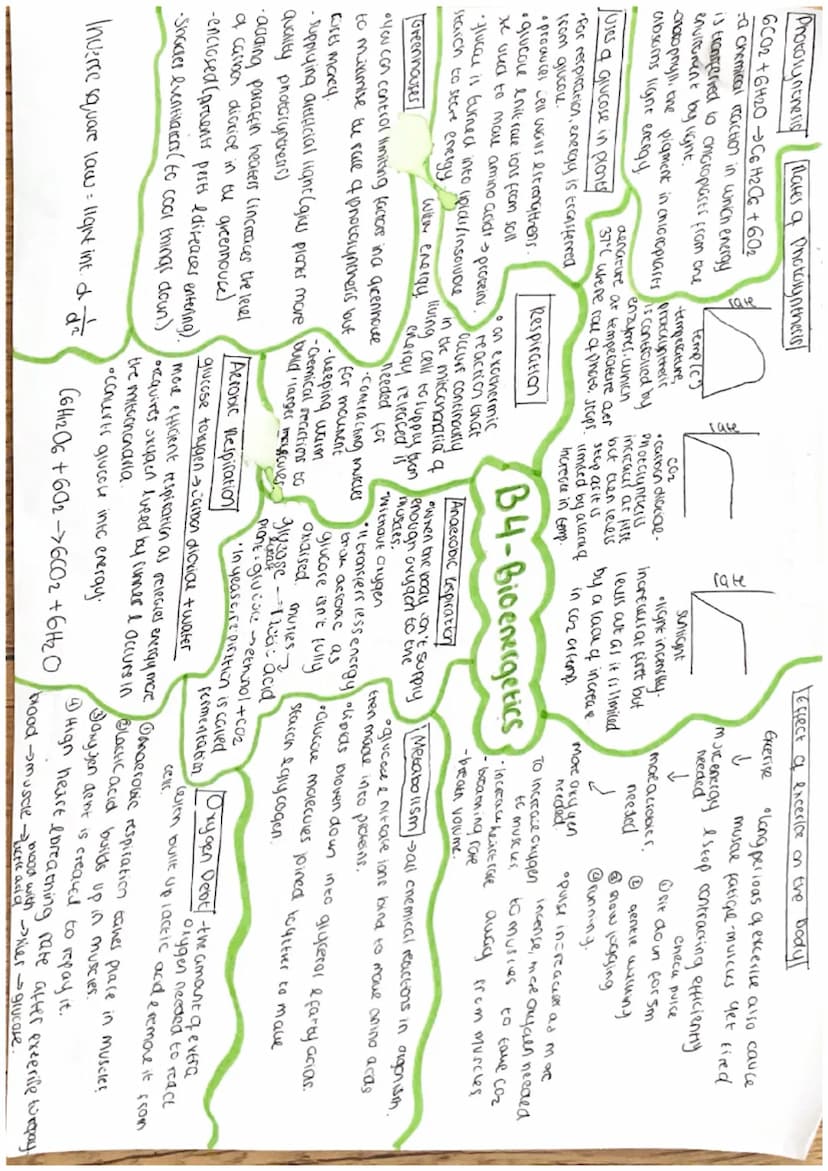 B4-Bioenergetics
Photosynthesis
6CO2 + 6H2O → C6H12O6 + 6O2
-a chemical reaction in which energy
is transferred to chloroplasts from the
environment by light.
-chlorophyll: the pigment in chloroplasts
absorbs light energy.
Rates of Photosynthesis
rate
temp(°C)
-temperature-
photosynthesis
is controlled by
enzymes, which
denature at temperature over
37°C where rate of photo stops.
rate
CO2
•carbon dioxide-
photosynthesis
increases at first
but then levels
stop as it is
limited by a lack of
increase in temp.
rate
sunlight
•light intensity-
increases at first but
levels out as it is limited
by a lack of increase
in CO2 or temp.
Effect of excercise on the body
Exercise
↓
more energy
needed
↓
more aerobic r.
needed
↙
more oxygen
needed.
•Long periods of excercise also cause
muscle fatigue-muscles get tired
& stop contracting efficiently
① sit down for 5m
check pulse
② gentle walking
③ slow jogging
④ running.
To increase oxygen
to muscles
•increase heart rate
-breathing rate
-breath volume.
•pulse increases as more
incense, more oxygen needed
to muscles to take CO2
away from muscles
Use of glucose in plants
•for respiration, energy is transferred
from glucose.
•produces cell walls & strengthens.
•glucose & nitrate ions from soil
be used to make amino acids → protein.
•glucose is turned into lipids/insoluble
starch to store energy
Respiration
•an exothermic
reaction that
occurs continously
in the mitocondria of
living cell to supply them
with energy.
energy released is
needed for
-contracting muscles
for movement
-keeping warm
-chemical reactions to
build larger molecules
Greenhouses
•you can control limiting factors in a greenhouse
to maximise the rate of photosynthesis but
costs money.
-supplying artificial light (gives plants more
quality photosynthesis)
-adding parafin heaters (increases the level
of carbon dioxide in the greenhouse)
-enclosed (prevents pests & diseases entering).
-shades & ventilators (to cool things down)
Inverse square law = light int. α 1/d2
Anaerobic respiration
•when the body can't supply
enough oxygen to the
muscles.
•without oxygen
•It transfers less energy
than aerobic as
glucose isn't fully
oxidised. muscles
glucose → lactic acid
plant: glucose → ethanol + CO2
•In yeast, respiration is called
fermentation
Aerobic Respiration
glucose + oxygen → carbon dioxide + water
more efficient respiration as releases energy more
•requires oxygen & used by runners & occurs in
the mitochondria.
•converts glucose into energy.
C6H12O6 + 6O2 → 6CO2 + 6H2O
Metabolism → all chemical reactions in organism.
•glucose & nitrate ions bind to make amino acids
then made into proteins.
•lipids broken down into glycerol & fatty acids.
•Glucose molecules joined together to make
starch & glycogen.
Oxygen Debt - the amount of extra
oxygen needed to react
with built up lactic acid & remove it from
cells.
①anaerobic respiration takes place in muscles
②lactic acid builds up in muscles
③Oxygen debt is created to repay it.
④ High heart & breathing rate after exercise to repay
blood → muscle → blood with lactic acid → liver → glucose.